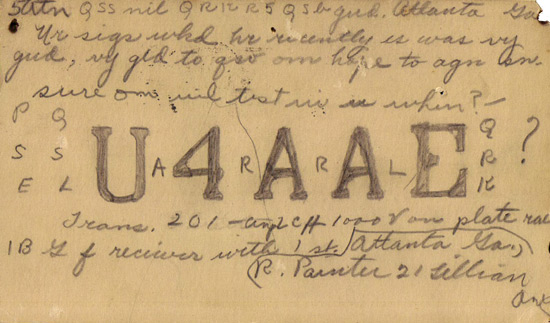 5trtn QSS nil QRK R5 QSB gud. Atlanta Ga.
Ur sigs wkd hr recently es was vy
gud, vy gld to qso om hope to agn sn.
sure om wil test wi u when? -
PSE QSL U4AAE QRK ?
A R R L
Trans. 201-ampl cft 1000V on plate rac
1B G f reciever with 1 st. Atlanta Ga.,
R. Painter 21 Gillian